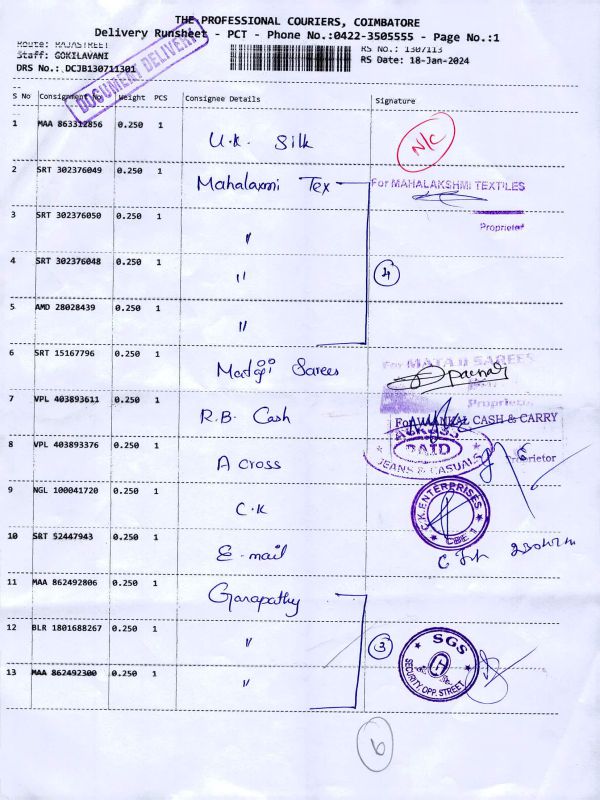 THE PROFESSIONAL COURIERS, COIMBATORE
Delivery Runsheet - PCT - Phone No.:0422-3505555 - Page No.:1
Route: RAJASTREET
RS No.: 1307113
Staff: GOKILAVANI
RS Date: 18-Jan-2024
DRS No.: DCJB130711301
DOCUMENT DELIVERY
S No Consignment No Weight PCS Consignee Details Signature
1 MAA 863312856 0.250 1 U.K. Silk N/C
2 SRT 302376049 0.250 1 Mahalaxmi Tex For MAHALAKSHMI TEXTILES
Proprietor
3 SRT 302376050 0.250 1 "
4 SRT 302376048 0.250 1 " 4
5 AMD 28028439 0.250 1 "
6 SRT 15167796 0.250 1 Mataji Sarees For MATAJI SAREES
Proprietor
7 VPL 403893611 0.250 1 R.B. Cash CASH & CARRY
Proprietor
8 VPL 403893376 0.250 1 Across ACROSS PAID JEANS & CASUALS
9 NGL 100041720 0.250 1 C.K C.K.ENTERPRISES CBE-1
10 SRT 52447943 0.250 1 E-mail
11 MAA 862492806 0.250 1 Ganapathy
12 BLR 1801688267 0.250 1 " 3 SGS SECURITY, OPP. STREET
13 MAA 862492300 0.250 1 "
6